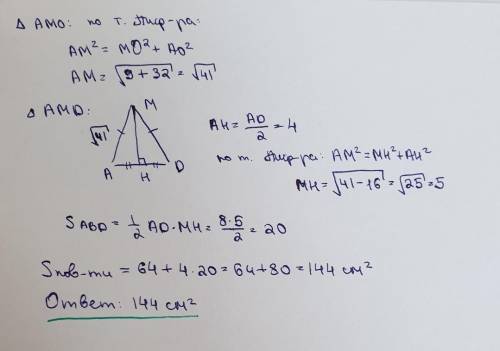 Δ AMO: по т. Пиф-ра:
AM² = MO² + AO²
AM = √(9 + 32) = √41
Δ AMD:
M
√41
A H D
AH = AD/2 = 4
по т. Пиф-ра: AM² = MH² + AH²
MH = √(41 - 16) = √25 = 5
S ABD = 1/2 AD · MH = 8·5/2 = 20
Sпов-ти = 64 + 4·20 = 64 + 80 = 144 см²
Ответ: 144 см²